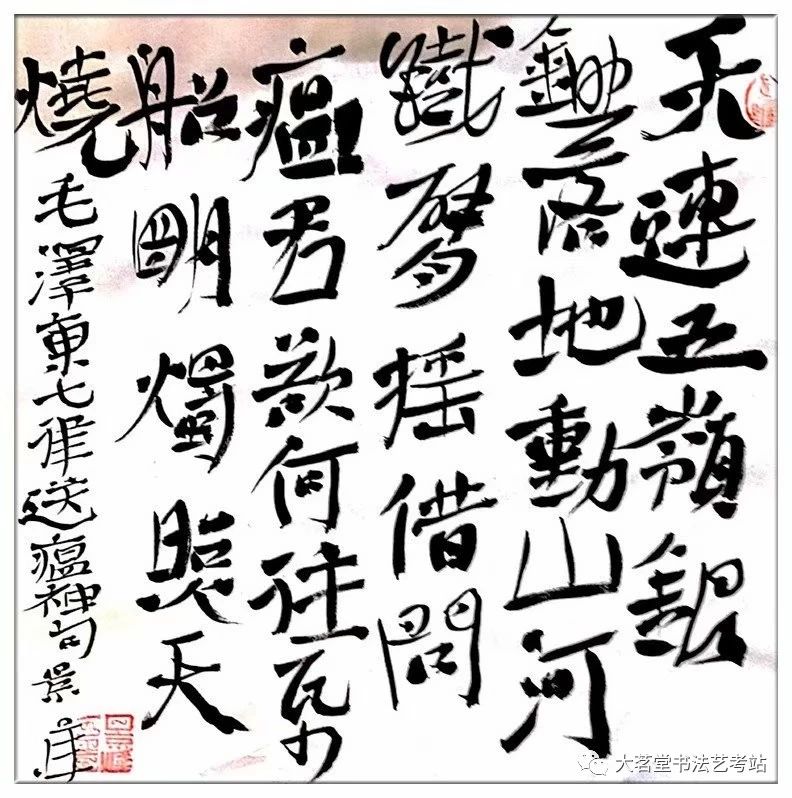 天連五嶺銀
鋤落地動山河
鐵臂摇借問
瘟君欲何往帋
船明燭照天
燒
毛澤東七律送瘟神句景
大茗堂书法艺考站